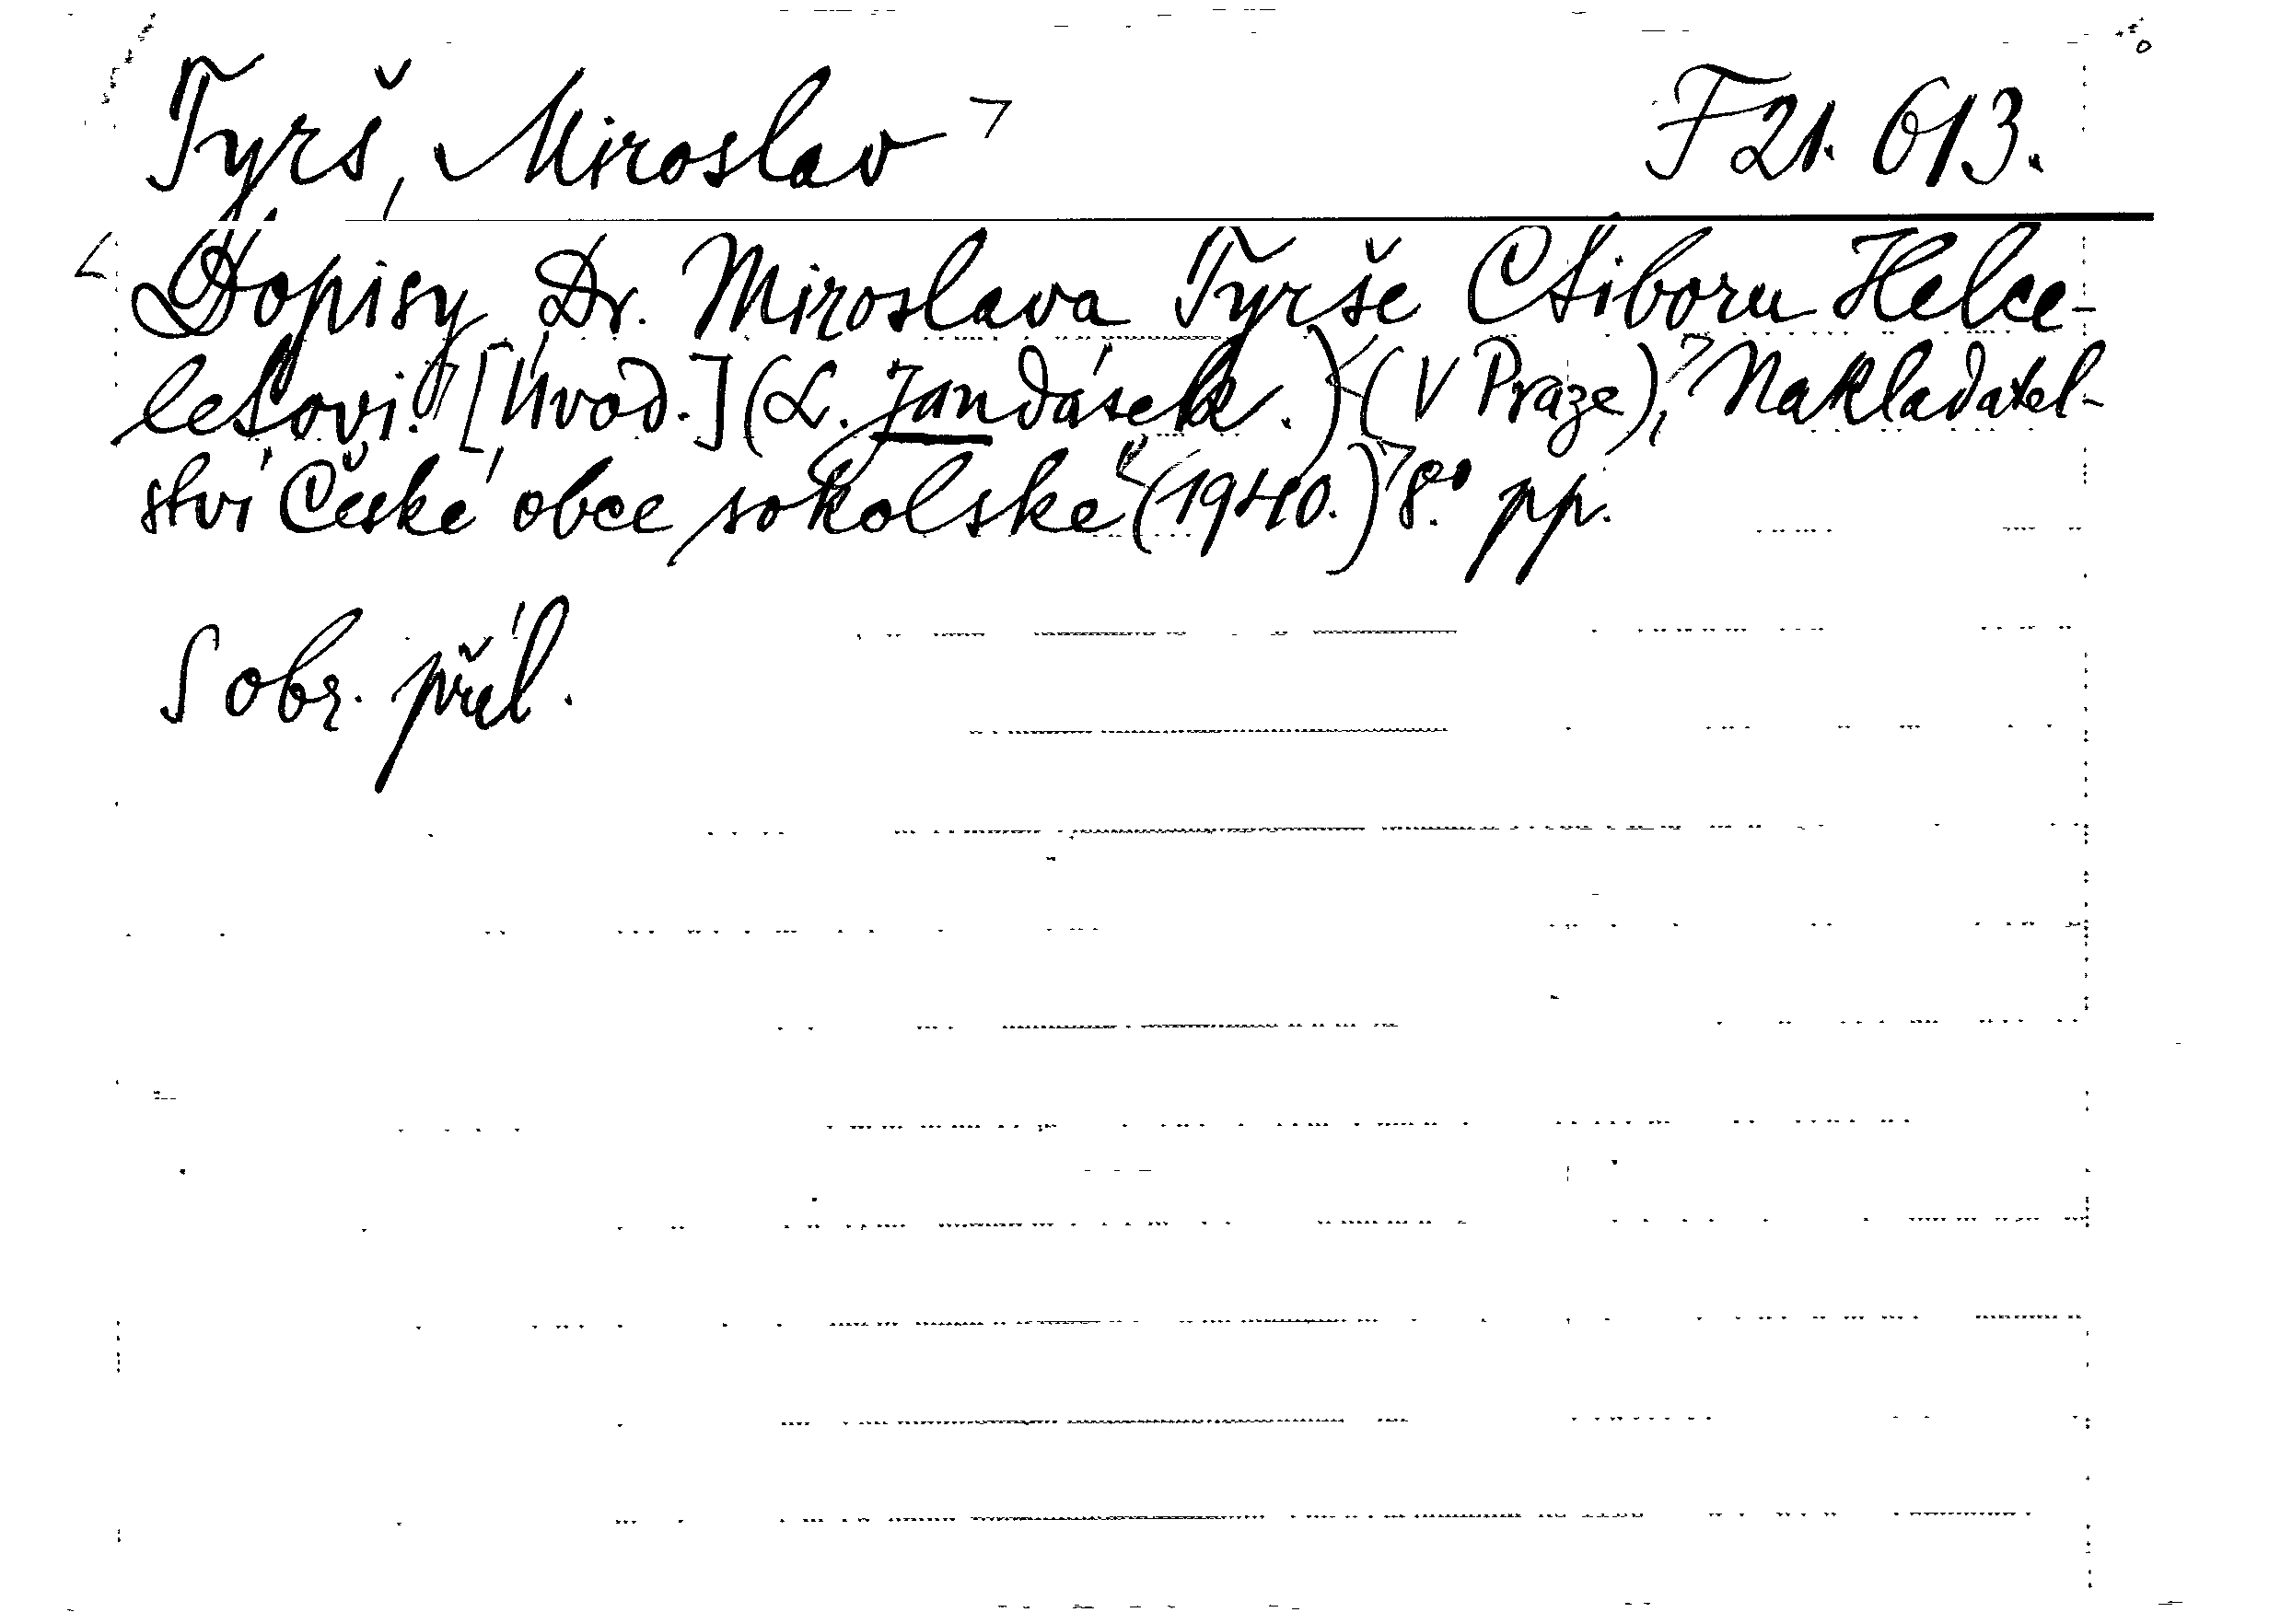 Tyrš, Miroslav F 21. 613.
Dopisy Dr. Miroslava Tyrše Ctiboru Helce-
letovi. [Úvod.] (L. Jandásek.) (V Praze), Nakladatel-
ství České obce sokolské (1940.) 8.° pp.
S obr. příl.